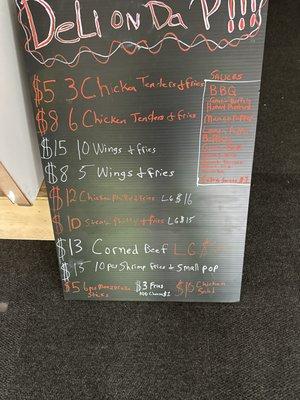 Deli on Da P!!!
$5 3 Chicken Tenders & fries
$8 6 Chicken Tenders & fries
$15 10 Wings & fries
$8 5 Wings & fries
$12 Chicken Philly & fries LG $16
$10 Steak Philly & fries LG $15
$13 Corned Beef LG $
$15 10 pc Shrimp Fries & Small pop
$5 6 pc Mozzarella Sticks
$3 Fries
Add Cheese $1
$10 Chicken Salad
SAUCES
BBQ